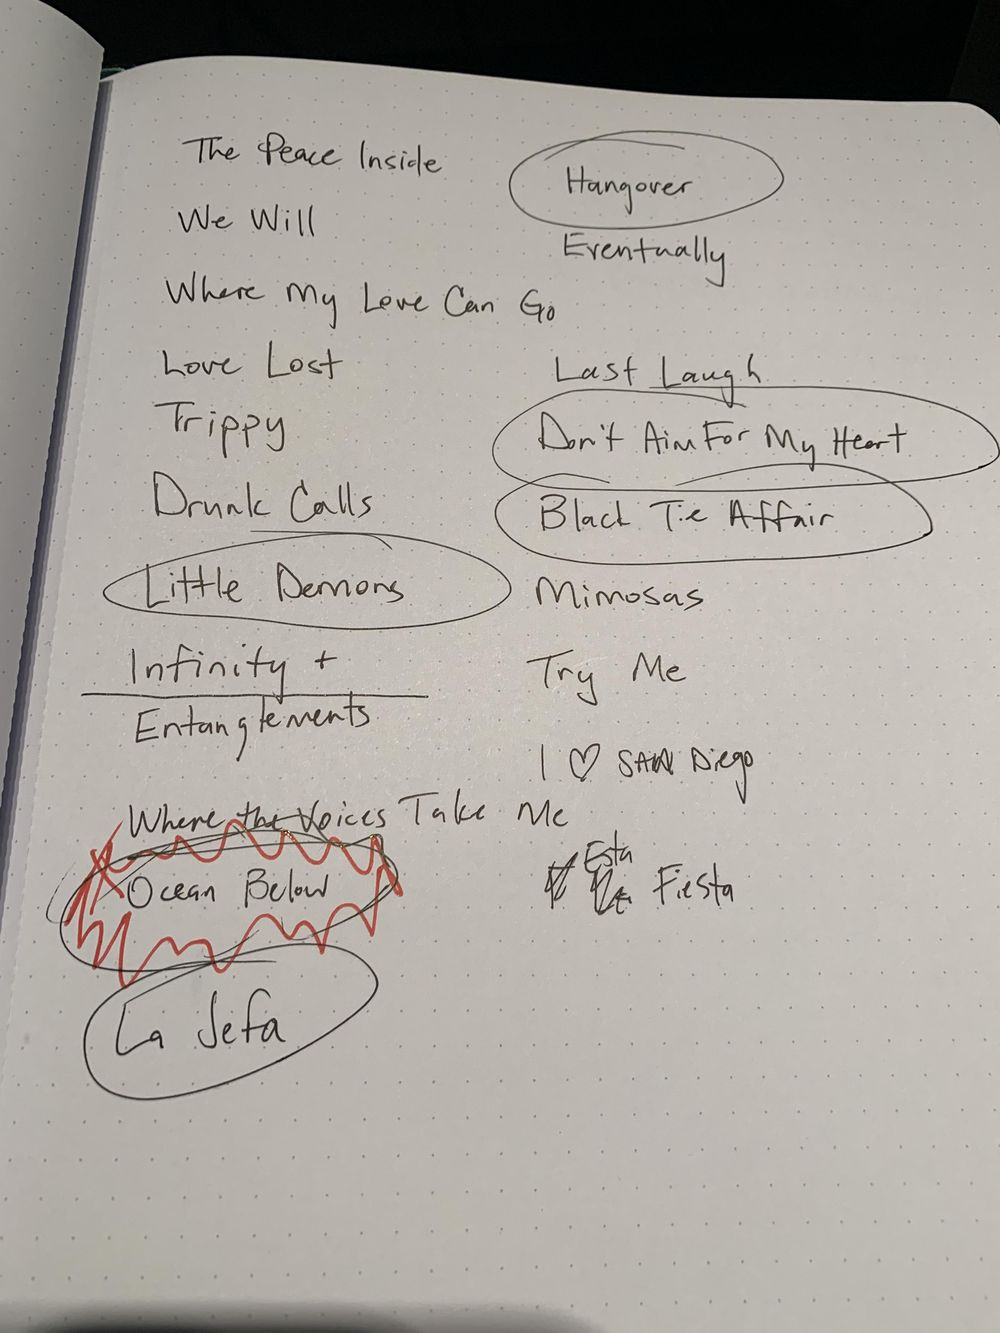 The Peace Inside
We Will
Where My Love Can Go
Love Lost
Trippy
Drunk Calls
Little Demons
Infinity +
Entanglements
Where the Voices Take Me
Ocean Below
La Jefa
Hangover
Eventually
Last Laugh
Don't Aim For My Heart
Black Tie Affair
Mimosas
Try Me
I ♡ SAN Diego
Esta Fiesta